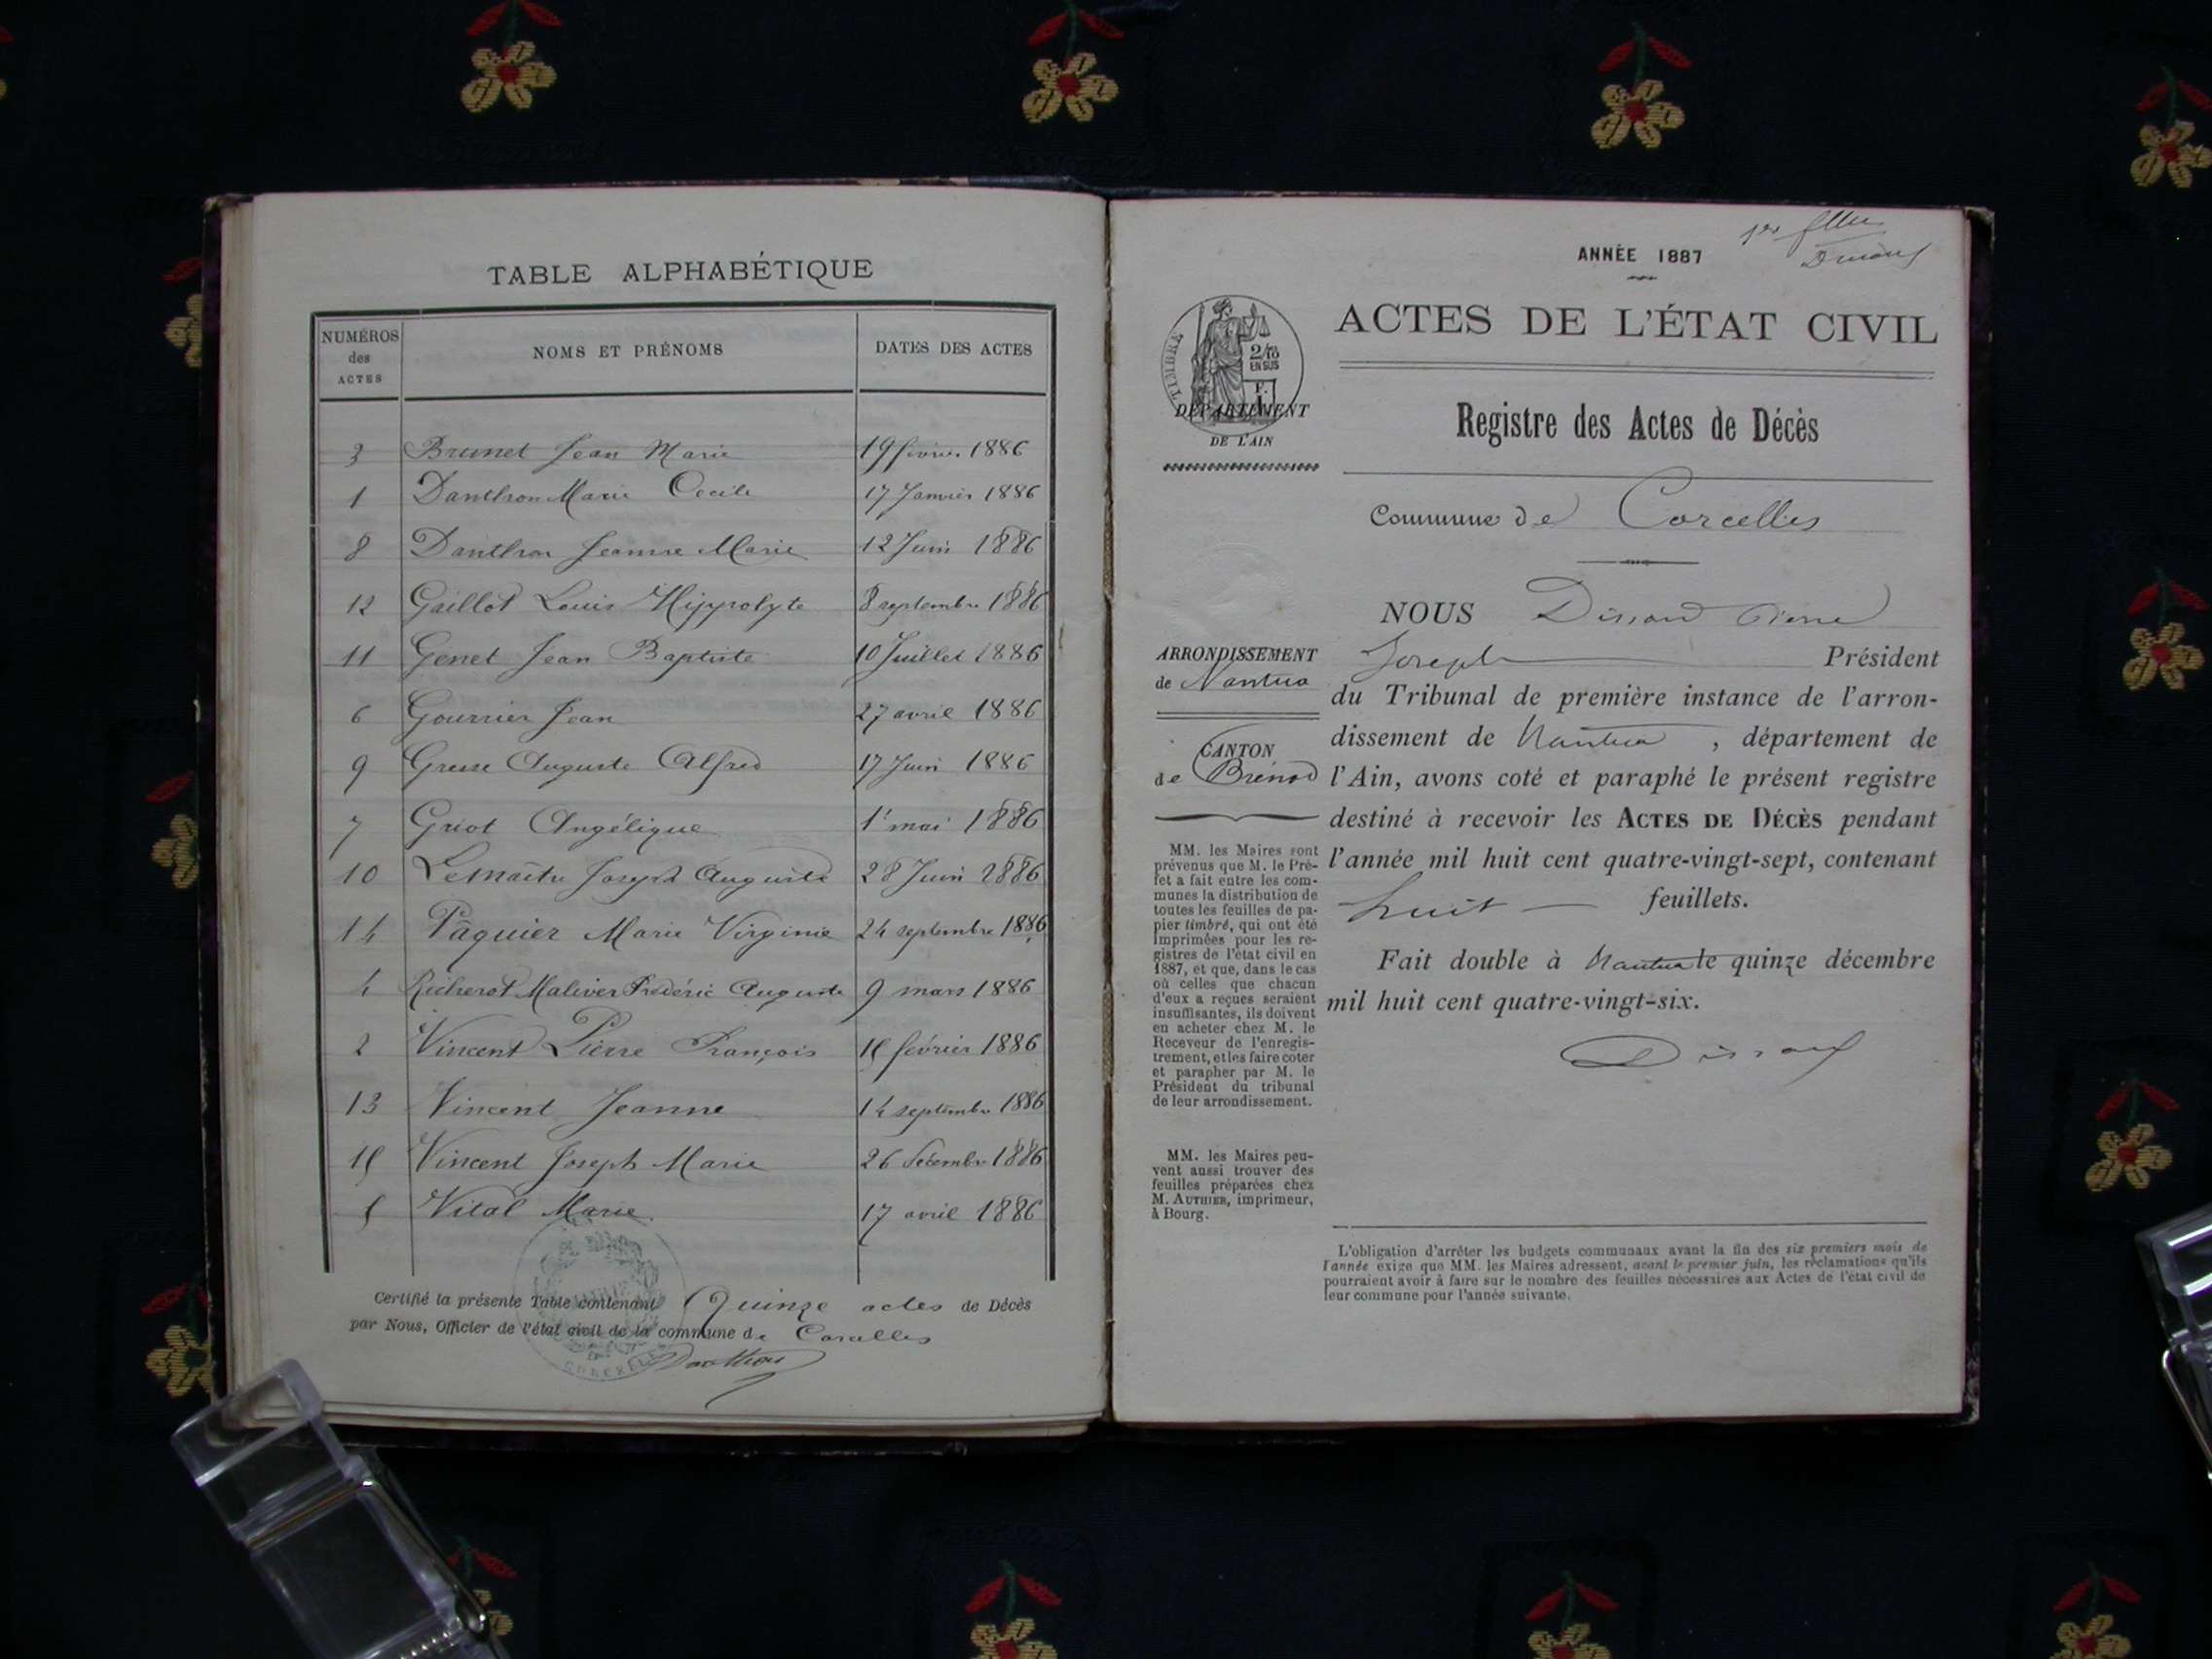 TABLE ALPHABÉTIQUE
NUMÉROS des ACTES NOMS ET PRÉNOMS DATES DES ACTES
3 Brunet Jean Marie 19 février 1886
1 Danthon Marie Cecile 17 Janvier 1886
8 Danthon Jeanne Marie 12 Juin 1886
12 Gaillot Louis Hippolyte 8 septembre 1886
11 Genet Jean Baptiste 10 Juillet 1886
6 Gourrier Jean 27 avril 1886
9 Auguste Alfred 17 Juin 1886
7 Griot Angélique 1r mai 1886
10 Lemaître Joseph Auguste 28 Juin 1886
14 Pâquier Marie Virginie 24 septembre 1886
4 Richerot Maliver Frédéric Auguste 9 mars 1886
2 Vincent Pierre François 15 février 1886
13 Vincent Jeanne 14 septembre 1886
15 Vincent Joseph Marie 26 décembre 1886
5 Vital Marie 17 avril 1886
Certifié la présente Table contenant Quinze actes de Décès
par Nous, Officier de l'état civil de la commune de Corcelles
CORCELLES
Danthon
1er
ANNÉE 1887
TIMBRE
2/10
EN SUS
F.
1
ACTES DE L'ÉTAT CIVIL
DÉPARTEMENT
DE L'AIN
Registre des Actes de Décès
Commune de Corcelles
ARRONDISSEMENT
de Nantua
CANTON
de Brénod
MM. les Maires sont
prévenus que M. le Pré-
fet a fait entre les com-
munes la distribution de
toutes les feuilles de pa-
pier timbré, qui ont été
imprimées pour les re-
gistres de l'état civil en
1887, et que, dans le cas
où celles que chacun
d'eux a reçues seraient
insuffisantes, ils doivent
en acheter chez M. le
Receveur de l'enregis-
trement, et les faire coter
et parapher par M. le
Président du tribunal
de leur arrondissement.
MM. les Maires peu-
vent aussi trouver des
feuilles préparées chez
M. AUTHIER, imprimeur,
à Bourg.
NOUS Pierre
Joseph Président
du Tribunal de première instance de l'arron-
dissement de Nantua, département de
l'Ain, avons coté et paraphé le présent registre
destiné à recevoir les ACTES DE DÉCÈS pendant
l'année mil huit cent quatre-vingt-sept, contenant
huit feuillets.
Fait double à Nantua le quinze décembre
mil huit cent quatre-vingt-six.
L'obligation d'arrêter les budgets communaux avant la fin des six premiers mois de
l'année exige que MM. les Maires adressent, avant le premier juin, les réclamations qu'ils
pourraient avoir à faire sur le nombre des feuilles nécessaires aux Actes de l'état civil de
leur commune pour l'année suivante.